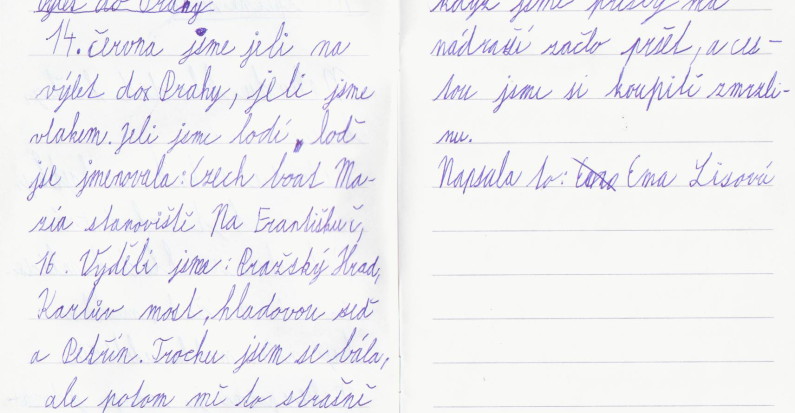 Výlet do Prahy
14. června jsme jeli na
výlet do Prahy, jeli jsme
vlakem. Jeli jsme lodí, loď
jse jmenovala: Czech boat Ma-
ria stanoviště Na Františku č,
16. Vyděli jsme: Pražský Hrad,
Karlův most, hladovou seď
a Petřín. Trochu jsem se bála,
ale potom mě to strašně
když jsme přišly na
nádraší začlo pršet, a ces-
tou jsme si koupili zmrzli-
nu.
Napsala to: Ema Lisová